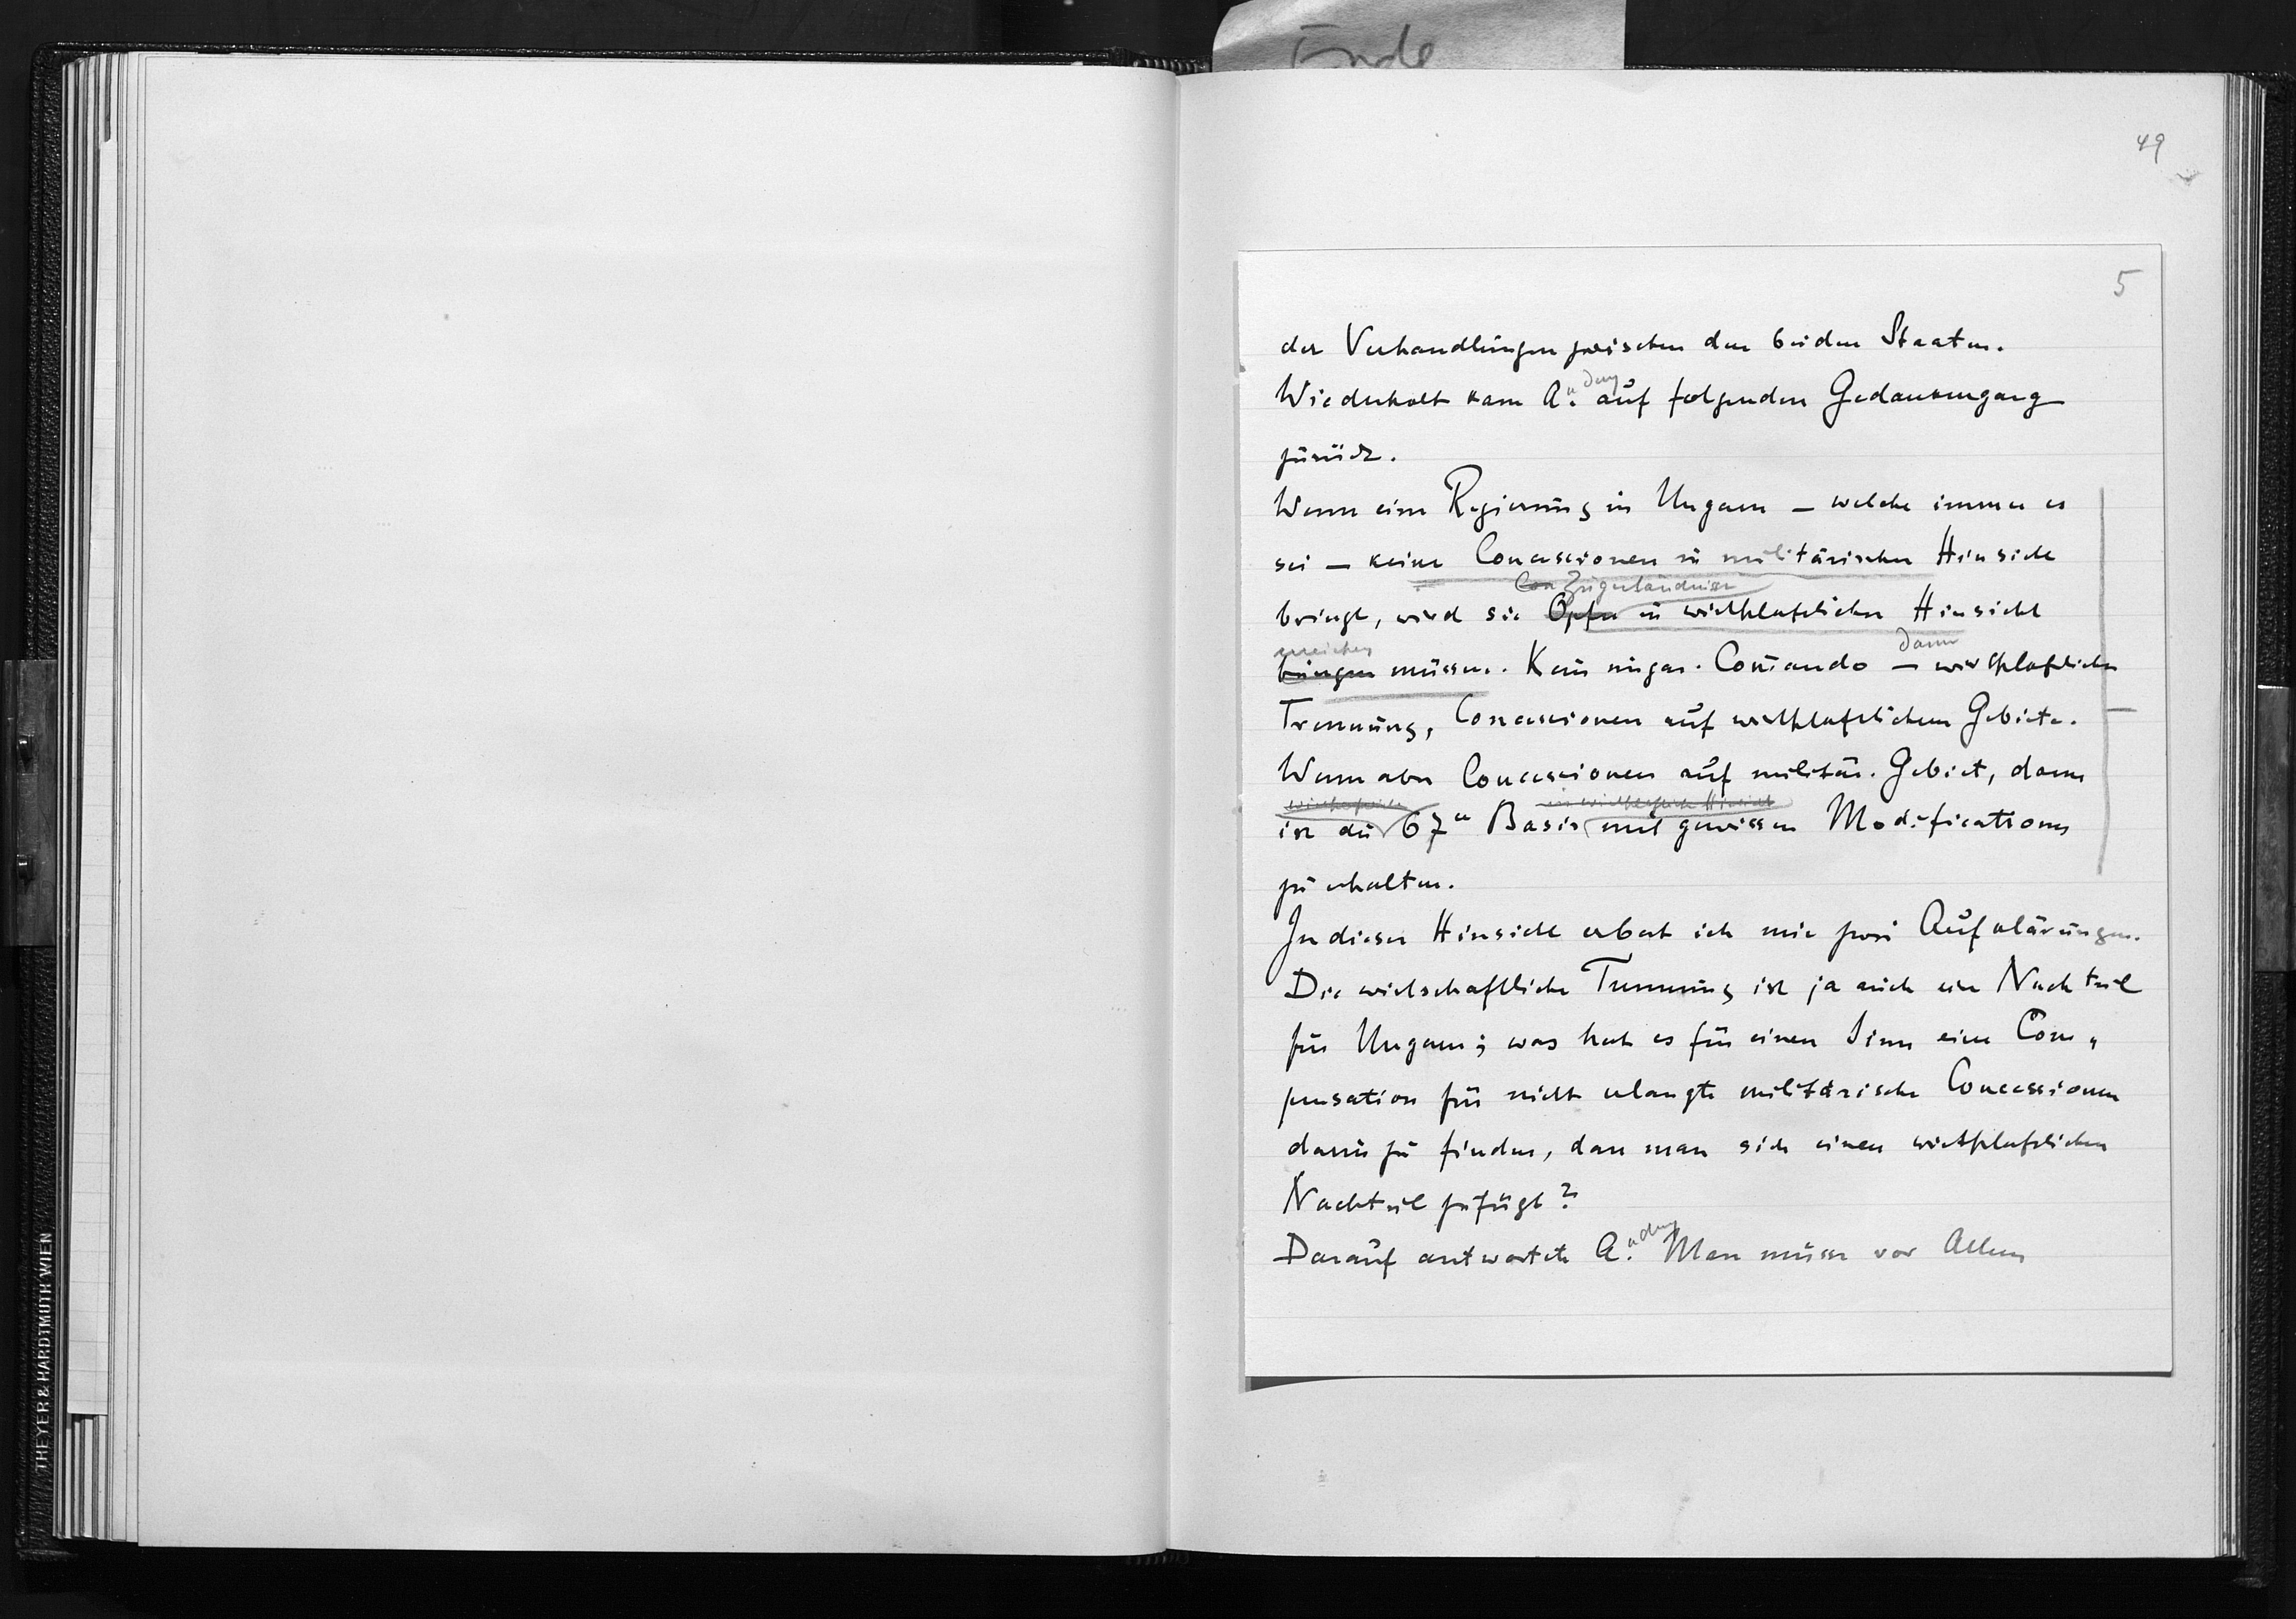 Ende
49
5
der Verhandlungen zwischen den beiden Staaten.
Wiederholt kam A.ndrassy auf folgenden Gedankengang
zurück.
Wenn eine Regierung in Ungarn – welche immer es
sei – keine Concessionen in militärischer Hinsicht
Con Zugeständnisse
bringt, wird sie Opfer in wirthschaftlicher Hinsicht
erreichen dann
bringen müssen. Kein ungar. Com̄ando – wirthschaftliche
Trennung, Concessionen auf wirthschaftlichem Gebiete.
Wenn aber Concessionen auf militär. Gebiet, dann
wirthschaftliche in wirthschaftlicher Hinsicht
ist die 67er Basis mit gewissen Modificationen
zu erhalten.
In dieser Hinsicht erbat ich mir zwei Aufklärungen.
Die wirtschaftliche Trennung ist ja auch ein Nachteil
für Ungarn; was hat es für einen Sinn eine Com„
pensation für nicht erlangte militärische Concessionen
darin zu finden, dass man sich einen wirthschaftlichen
Nachteil zufügt?
Darauf antwortete A.ndrassy Man müsse vor Allem
THEYER & HARDTMUTH WIEN